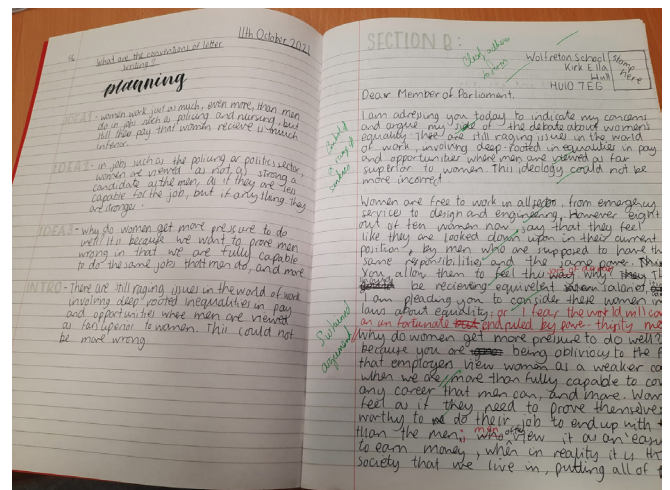 11th October 2021
What are the conventions of letter
writing?
planning
IDEA 1 - women work just as much, even more, than men
do in jobs such as policing and nursing, but
still the pay that women recieve is much
inferior.
IDEA 2 - in jobs such as the policing or politics sector,
women are viewed as not as strong a
candidate as the men, as if they are less
capable for the job, but if anything they
are stronger.
IDEA 3 - why do women get more pressure to do
well? It is because we want to prove men
wrong in that we are fully capable
to do the same jobs that men do, and more
INTRO - There are still raging issues in the world of work
involving deep rooted inequalities in pay
and opportunities where men are viewed
as far superior to women. This could not
be more wrong.
SECTION B:
Wolfreton School
Kirk Ella
Hull
HU10 7EG
Stamp
here
Dear Member of Parliament,
I am adressing you today to indicate my concerns
and argue my side of the debate about women's
equality. There are still raging issues in the world
of work, involving deep-rooted inequalities in pay
and opportunities where men are viewed as far
superior to women. This ideology could not be
more incorrect.
Women are free to work in all sectors, from emergency
service to design and engineering. However eight
out of ten women now say that they feel
like they are looked down upon in their current
position, by men who are supposed to have the
same responsibilities and the same power.
you allow them to feel this way? why
be recieving equivalent salaries,
I am pleading you to consider these women in
laws about equality; or I fear the world will
an unfortunate end ruled by power-thirsty me
Why do women get more pressure to do well?
because you are being oblivious to the f
that employers view women as a weaker ca
when we are more than fully capable to
any career that men can, and more. Wom
feel as if they need to prove themselve
worthy to do their job to end up with
than the men; men who often view it as an eas
to earn money, when in reality it is th
society that we live in, putting all of